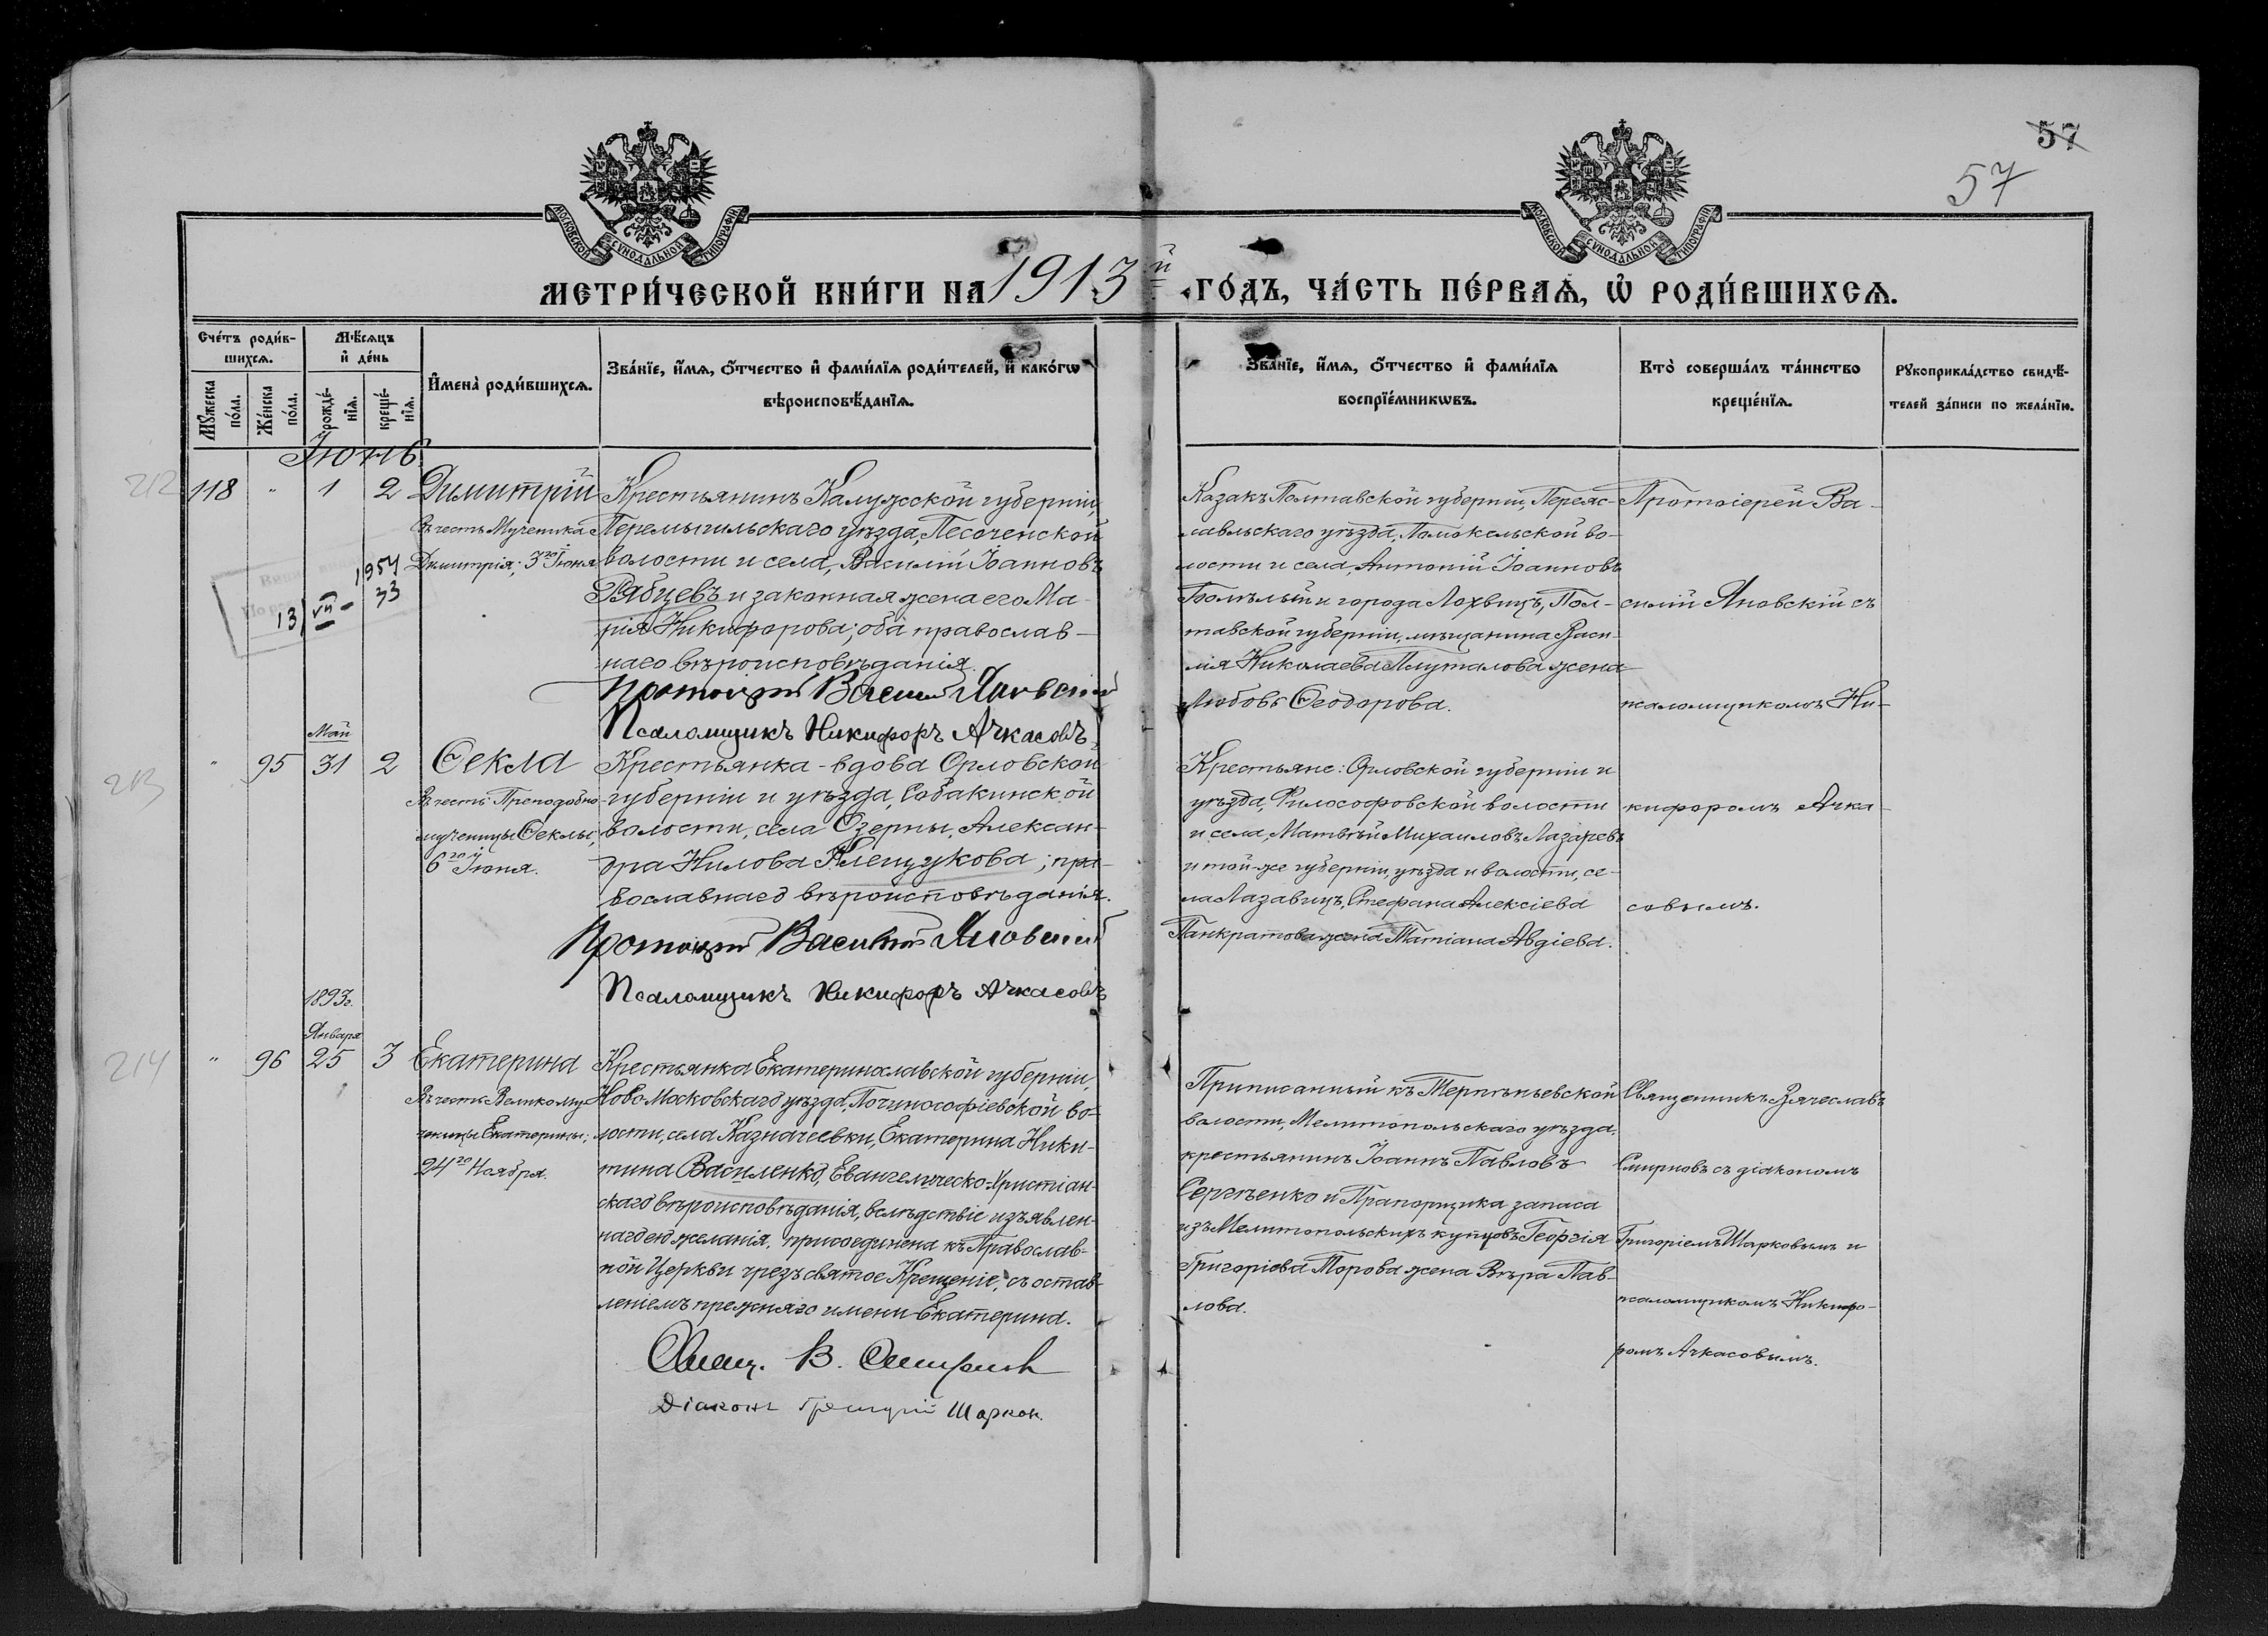 57
57
МОСКОВСКОЙ СѴНОДАЛЬНОЙ ТИПОГРАФІИ
МОСКОВСКОЙ СѴНОДАЛЬНОЙ ТИПОГРАФІИ
МЕТРИ́ЧЕСКОЙ КНИ́ГИ НА 1913й ГО́ДЪ, ЧА́СТЬ ПЕ́РВАѦ, Ѡ҆ РОДИ́ВШИХСѦ.
Сче́тъ роди́в-
шихсѧ.
Мꙋ́жеска по́ла.
Же́нска по́ла.
Мѣ́сѧцъ
и҆ де́нь
рожде́-
нїѧ.
креще́-
нїѧ.
И҆мена̀ роди́вшихсѧ.
Зва́нїе, и҆́мѧ, ѻ҆́тчество и҆ фами́лїѧ роди́телей, и҆ како́гѡ
вѣроисповѣ́данїѧ.
Зва́нїе, и҆́мѧ, ѻ҆́тчество и҆ фами́лїѧ
воспрїе́мникѡвъ.
Кто̀ соверша́лъ та́инство
креще́нїѧ.
Рꙋкоприкла́дство свидѣ́-
телей за́писи по жела́нїю.
Іюнь
212
118 " 1 2
Димитрій
Въ честь Мученика
Димитрія; 3го Іюня
1954
13/VII - 33
Крестьянинъ Калужской губерніи,
Перемышльскаго уѣзда, Песоченской
волости и села, Василій Іоанновъ
Рябцевъ и законная жена его Ма-
рія Никифорова; оба православ-
наго вѣроисповѣданія.
Протоіерей Василій Яновскій
Псаломщикъ Никифоръ Ачкасовъ
Казакъ Полтавской губерніи, Переяс-
лавльскаго уѣзда, Помокельской во-
лости и села, Антоній Іоанновъ
и города Лохвицъ, Пол-
тавской губерніи, мѣщанина Васи-
лія Николаева Плуталова жена
Любовь Ѳеодорова.
Протоіерей Ва-
силій Яновскій съ
псаломщикомъ Ни-
кифоромъ Ачка-
совымъ.
213
Май
" 95 31 2
Ѳекла
Въ честь Преподобно-
мученицы Ѳеклы,
6го Іюня.
Крестьянка-вдова Орловской
губерніи и уѣзда, Собакинской
волости, села Озерны, Алексан-
дра Нилова Клещукова; пра-
вославнаго вѣроисповѣданія.
Протоіерей Василій Яновскій
Псаломщикъ Никифоръ Ачкасовъ
Крестьяне: Орловской губерніи и
уѣзда, Философовской волости
и села, Матвѣй Михаиловъ Лазаревъ
и той-же губерніи, уѣзда и волости, се-
ла Лазавицъ, Стефана Алексіева
Панкратова жена Татіана Авдіева.
214
1893г.
Января
" 96 25 3
Екатерина
Въ честь Великому-
ченицы Екатерины;
24го Ноября.
Крестьянка Екатеринославской губерніи,
Ново Московскаго уѣзда, Почино софіевской во-
лости, села Казначеевки, Екатерина Ники-
тина Василенко, Евангелическо-Христіан-
скаго вѣроисповѣданія, вслѣдствіе изъявлен-
наго ею желанія, присоединена къ Православ-
ной Церкви чрезъ святое Крещеніе, съ остав-
леніемъ прежняго имени Екатерина.
Свящ. В. Смирновъ
Діаконъ Григорій Шарков.
Приписанный къ Терпѣньевской
волости, Мелитопольскаго уѣзда,
крестьянинъ Іоаннъ Павловъ
Сергѣенко и Прапорщика запаса
изъ Мелитопольскихъ купцовъ Георгія
Григоріева Торова жена Вѣра Пав-
лова.
Священникъ Вячеславъ
Смирновъ съ діакономъ
Григоріемъ Шарковымъ и
псаломщикомъ Никифо-
ромъ Ачкасовымъ.